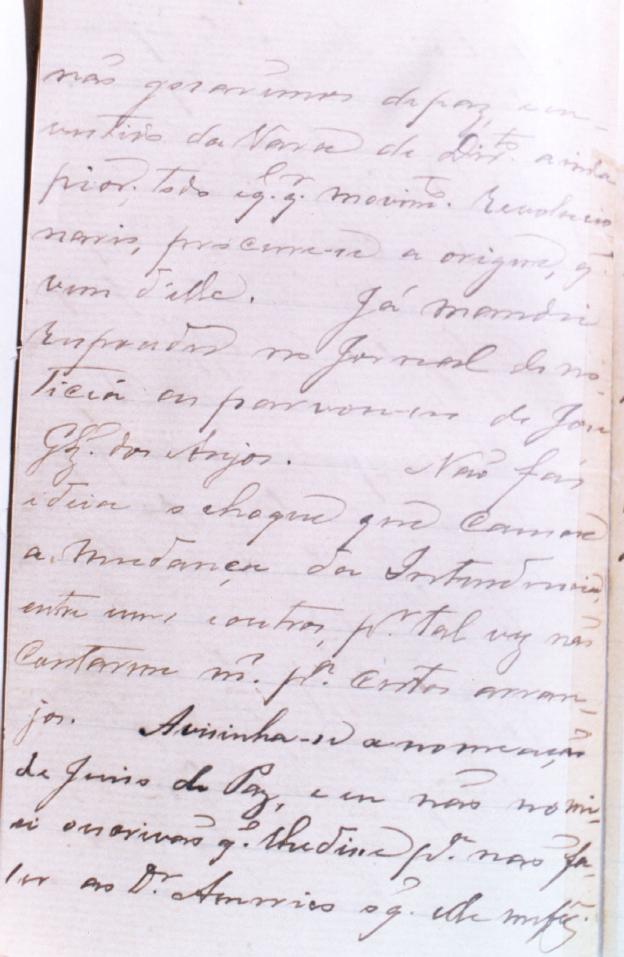 não gosarêmos de paz, e en-
da Vara de Dirto. ainda
pior, todo e qlqr. movimto. Revolucio
nario, procure-se a origem, q.
vem d'elle. Já mandei
Responder no Jornal de no-
ticia as de José
Glz. dos Anjos. Não fás
ideia o choque que causou
a mudança da Intendencia,
entre uns e outros, pr. tal vez não
contarem m. pa. certos arran-
jos. Avisinha-se a nomeação
de Juiz de Paz, e eu não nomi-
ei o escrivão q. lhe disse pa. não fa-
lar ao Dr. Americo